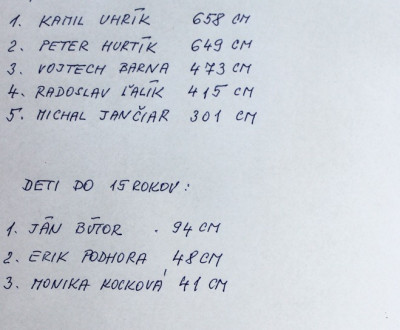 1. KAMIL UHRÍK 658 CM
2. PETER HURTÍK 649 CM
3. VOJTECH BARNA 473 CM
4. RADOSLAV ĽALÍK 415 CM
5. MICHAL JANČIAR 301 CM
DETI DO 15 ROKOV:
1. JÁN BÚTOR . 94 CM
2. ERIK PODHORA 48 CM
3. MONIKA KOCKOVÁ 41 CM